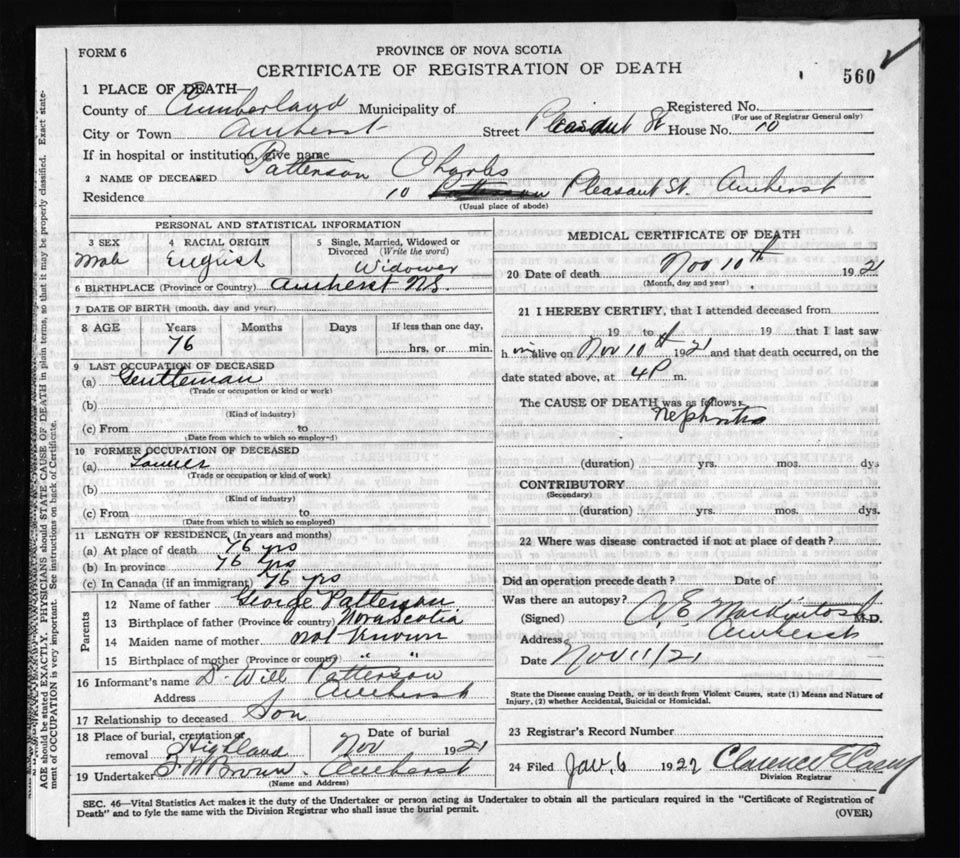 FORM 6
PROVINCE OF NOVA SCOTIA
CERTIFICATE OF REGISTRATION OF DEATH
560
1 PLACE OF DEATH—
County of Cumberland Municipality of Registered No.
(For use of Registrar General only)
City or Town Amherst Street Pleasant St House No. 10
If in hospital or institution, give name
2 NAME OF DECEASED Patterson Charles
Residence 10 Pleasant St. Amherst
(Usual place of abode)
PERSONAL AND STATISTICAL INFORMATION
3 SEX Male
4 RACIAL ORIGIN English
5 Single, Married, Widowed or Divorced (Write the word) Widower
6 BIRTHPLACE (Province or Country) Amherst N.S.
7 DATE OF BIRTH (month, day and year)
8 AGE Years Months Days If less than one day,
76 hrs, or min.
9 LAST OCCUPATION OF DECEASED
(a) Gentleman
(Trade or occupation or kind or work)
(b)
(Kind of industry)
(c) From to
(Date from which to which so employed)
10 FORMER OCCUPATION OF DECEASED
(a)
(Trade or occupation or kind or work)
(b)
(Kind of industry)
(c) From to
(Date from which to which so employed)
11 LENGTH OF RESIDENCE (In years and months)
(a) At place of death 76 yrs
(b) In province 76 yrs
(c) In Canada (if an immigrant) 76 yrs
Parents
12 Name of father George Patterson
13 Birthplace of father (Province or country) Nova Scotia
14 Maiden name of mother not known
15 Birthplace of mother (Province or country) " "
16 Informant's name D. Will Patterson
Address Amherst
17 Relationship to deceased Son
18 Place of burial, cremation or removal Highland Date of burial Nov 1921
19 Undertaker Brown. Amherst
(Name and Address)
MEDICAL CERTIFICATE OF DEATH
20 Date of death Nov 10th 1921
(Month, day and year)
21 I HEREBY CERTIFY, that I attended deceased from
19 to 19 that I last saw
h im alive on Nov 10th 1921 and that death occurred, on the
date stated above, at 4P m.
The CAUSE OF DEATH was as follows:
Nephritis
(duration) yrs. mos. dys
CONTRIBUTORY
(Secondary)
(duration) yrs. mos. dys.
22 Where was disease contracted if not at place of death?
Did an operation precede death? Date of
Was there an autopsy?
(Signed) A. E. Mackintosh M.D.
Address Amherst
Date Nov 11/21
State the Disease causing Death, or in death from Violent Causes, state (1) Means and Nature of
Injury, (2) whether Accidental, Suicidal or Homicidal.
23 Registrar's Record Number
24 Filed Jan. 6 1922 Clarence
Division Registrar
SEC. 46—Vital Statistics Act makes it the duty of the Undertaker or person acting as Undertaker to obtain all the particulars required in the "Certificate of Registration of
Death" and to fyle the same with the Division Registrar who shall issue the burial permit. (OVER)
AGE should be stated EXACTLY. PHYSICIANS should STATE CAUSE OF DEATH in plain terms, so that it may be properly classified. Exact state-
ment of OCCUPATION is very important. See instructions on back of Certificate.